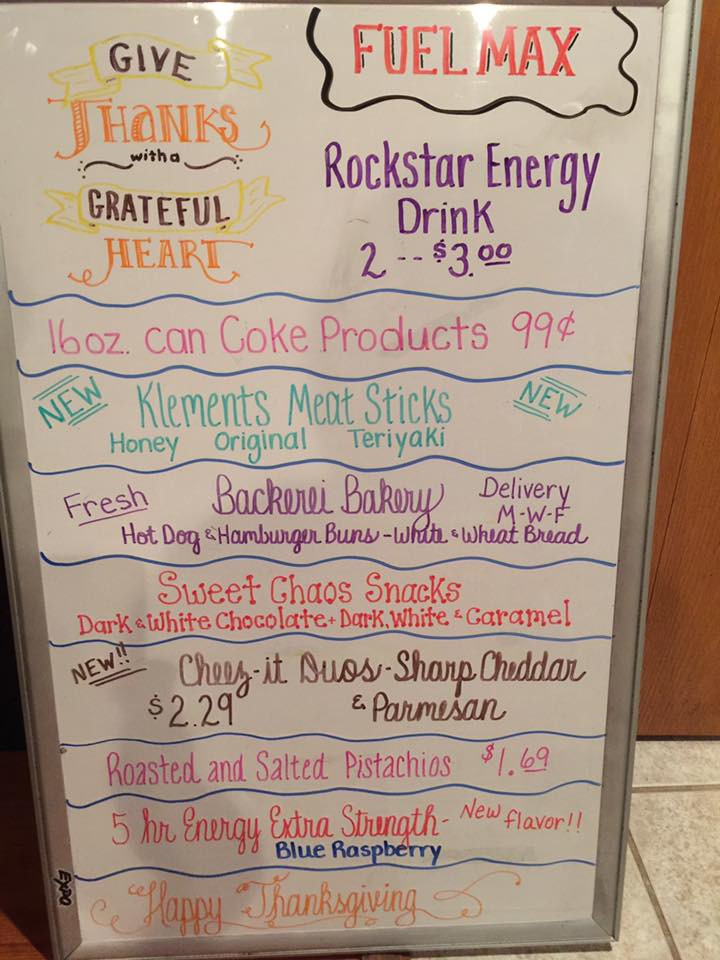 GIVE
THANKS
with a
GRATEFUL
HEART
FUEL MAX
Rockstar Energy
Drink
2 -- $3.00
16oz. can Coke Products 99¢
NEW Klements Meat Sticks NEW
Honey Original Teriyaki
Fresh Backerei Bakery Delivery
M-W-F
Hot Dog & Hamburger Buns - White & Wheat Bread
Sweet Chaos Snacks
Dark & White Chocolate + Dark, White & Caramel
NEW!! Cheez-it Duos - Sharp Cheddar
$2.29 & Parmesan
Roasted and Salted Pistachios $1.69
5 hr Energy Extra Strength - New flavor!!
Blue Raspberry
Happy Thanksgiving
EXPO